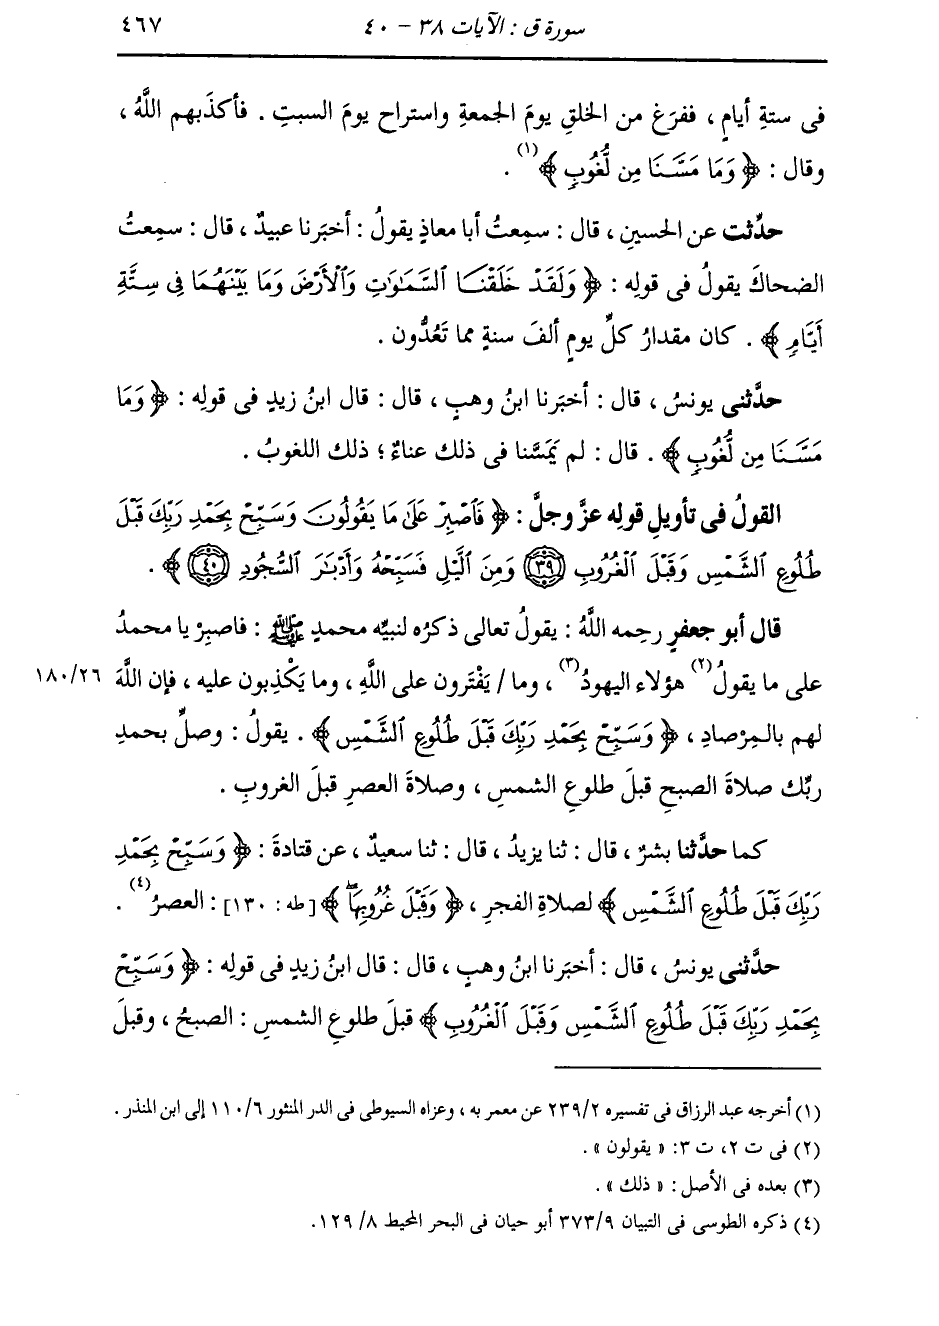 سورة ق : الآيات ٣٨ - ٤٠
٤٦٧
فى ستةِ أيامٍ ، ففرَغ من الخلقِ يومَ الجمعةِ واستراح يومَ السبتِ . فأكذَبهم اللَّهُ ،
وقال : ﴿ وَمَا مَسَّنَا مِن لُّغُوبٍ ﴾(١) .
حدِّثت عن الحسينِ ، قال : سمِعتُ أبا معاذٍ يقولُ : أخبَرنا عبيدٌ ، قال : سمِعتُ
الضحاكَ يقولُ فى قولِه : ﴿ وَلَقَدْ خَلَقْنَا السَّمَاوَاتِ وَالْأَرْضَ وَمَا بَيْنَهُمَا فِى سِتَّةِ
أَيَّامٍ ﴾ . كان مقدارُ كلِّ يومٍ ألفَ سنةٍ مما تَعُدُّون .
حدَّثنى يونسُ ، قال : أخبَرنا ابنُ وهبٍ ، قال : قال ابنُ زيدٍ فى قولِه : ﴿ وَمَا
مَسَّنَا مِن لُّغُوبٍ ﴾ . قال : لم يَمَسَّنا فى ذلك عناءٌ ؛ ذلك اللغوبُ .
القولُ فى تأويلِ قولِه عزَّ وجلَّ : ﴿ فَاصْبِرْ عَلَى مَا يَقُولُونَ وَسَبِّحْ بِحَمْدِ رَبِّكَ قَبْلَ
طُلُوعِ الشَّمْسِ وَقَبْلَ الْغُرُوبِ ٣٩ وَمِنَ الَّيْلِ فَسَبِّحْهُ وَأَدْبَارَ السُّجُودِ ٤٠ ﴾ .
قال أبو جعفرٍ رحِمه اللَّهُ : يقولُ تعالى ذكرُه لنبيِّه محمدٍ ﷺ : فاصبِرْ يا محمدُ
على ما يقولُ(٢) هؤلاء اليهودُ(٣) ، وما / يَفْتَرون على اللَّهِ ، وما يَكْذِبون عليه ، فإن اللَّهَ ١٨٠/٢٦
لهم بالمِرْصادِ ، ﴿ وَسَبِّحْ بِحَمْدِ رَبِّكَ قَبْلَ طُلُوعِ الشَّمْسِ ﴾ . يقولُ : وصلِّ بحمدِ
ربِّك صلاةَ الصبحِ قبلَ طلوعِ الشمسِ ، وصلاةَ العصرِ قبلَ الغروبِ .
كما حدَّثنا بشرٌ ، قال : ثنا يزيدُ ، قال : ثنا سعيدٌ ، عن قتادةَ : ﴿ وَسَبِّحْ بِحَمْدِ
رَبِّكَ قَبْلَ طُلُوعِ الشَّمْسِ ﴾ لصلاةِ الفجرِ ، ﴿ وَقَبْلَ غُرُوبِهَا ﴾ [ طه : ١٣٠ ] : العصرُ(٤) .
حدَّثنى يونسُ ، قال : أخبَرنا ابنُ وهبٍ ، قال : قال ابنُ زيدٍ فى قولِه : ﴿ وَسَبِّحْ
بِحَمْدِ رَبِّكَ قَبْلَ طُلُوعِ الشَّمْسِ وَقَبْلَ الْغُرُوبِ ﴾ قبلَ طلوعِ الشمسِ : الصبحُ ، وقبلَ
(١) أخرجه عبد الرزاق فى تفسيره ٢٣٩/٢ عن معمر به ، وعزاه السيوطى فى الدر المنثور ١١٠/٦ إلى ابن المنذر .
(٢) فى ت ٢، ت ٣: « يقولون » .
(٣) بعده فى الأصل : « ذلك » .
(٤) ذكره الطوسى فى التبيان ٣٧٣/٩ أبو حيان فى البحر المحيط ٨/ ١٢٩.